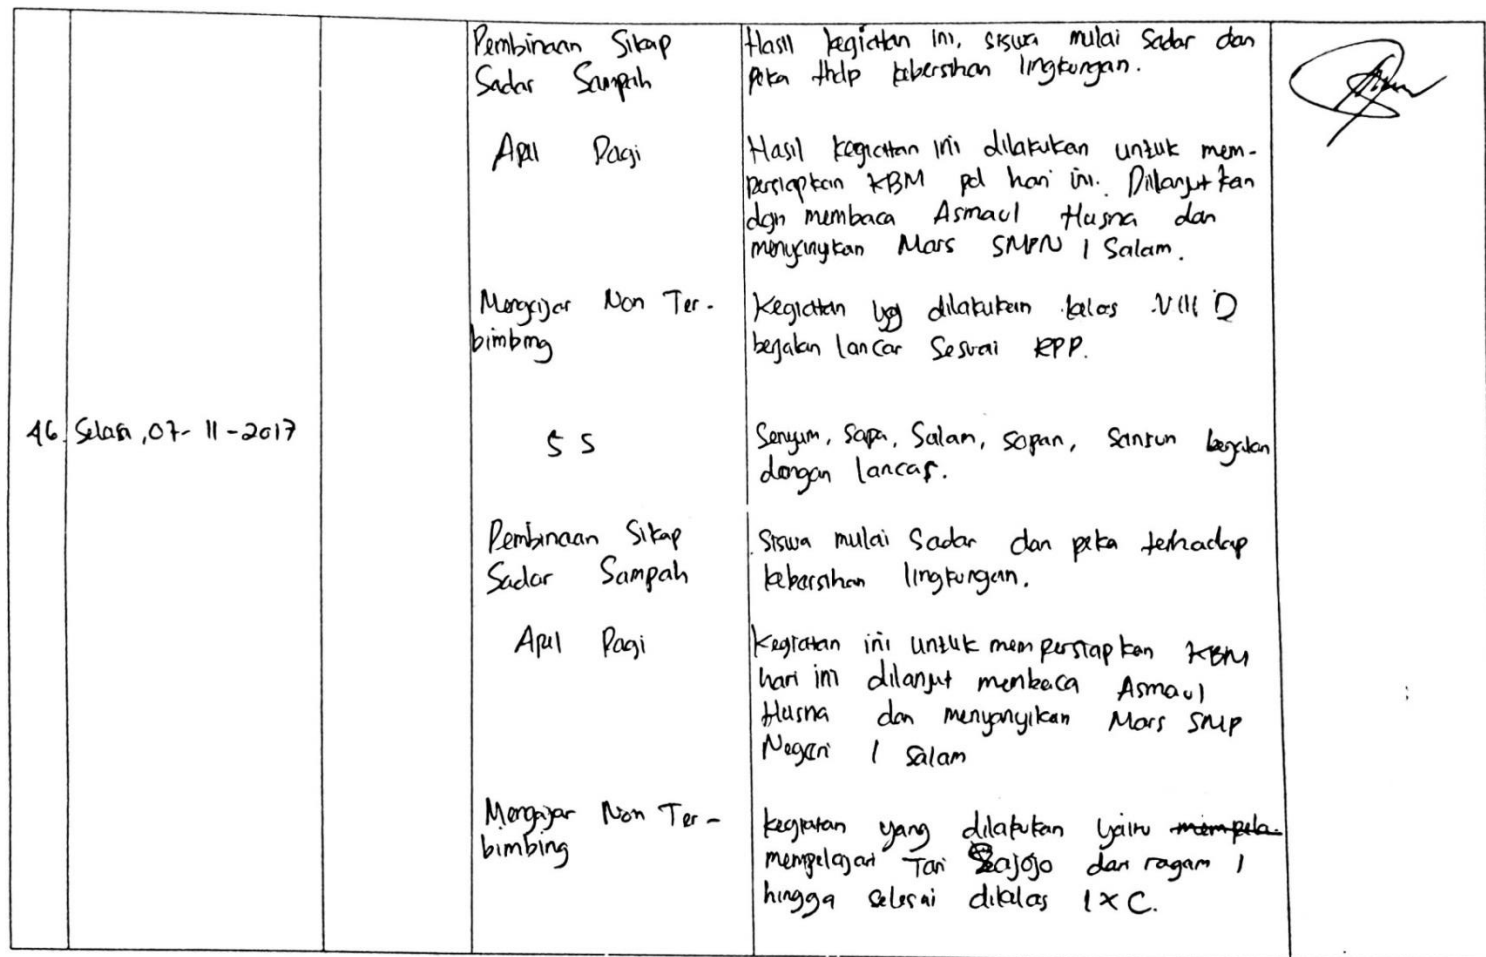 Pembinaan Sikap
Sadar Sampah
Hasil kegiatan ini, siswa mulai Sadar dan
peka thdp kebersihan lingkungan.
Apel Pagi
Hasil kegiatan ini dilakukan untuk mem-
persiapkan KBM pd hari ini. Dilanjutkan
dgn membaca Asmaul Husna dan
menyanyikan Mars SMPN 1 Salam.
Mengajar Non Ter-
bimbing
Kegiatan yg dilakukan kelas VIII D
berjalan lancar Sesuai RPP.
46. Selasa, 07-11-2017
5 S
Senyum, Sapa, Salam, sopan, Santun berjalan
dengan lancar.
Pembinaan Sikap
Sadar Sampah
Siswa mulai Sadar dan peka terhadap
kebersihan lingkungan.
Apel Pagi
Kegiatan ini untuk mempersiapkan KBM
hari ini dilanjut membaca Asmaul
Husna dan menyanyikan Mars SMP
Negeri 1 Salam
Mengajar Non Ter-
bimbing
kegiatan yang dilakukan yaitu mempela-
mempelajari Tari Sajojo dari ragam 1
hingga selesai dikelas IX C.